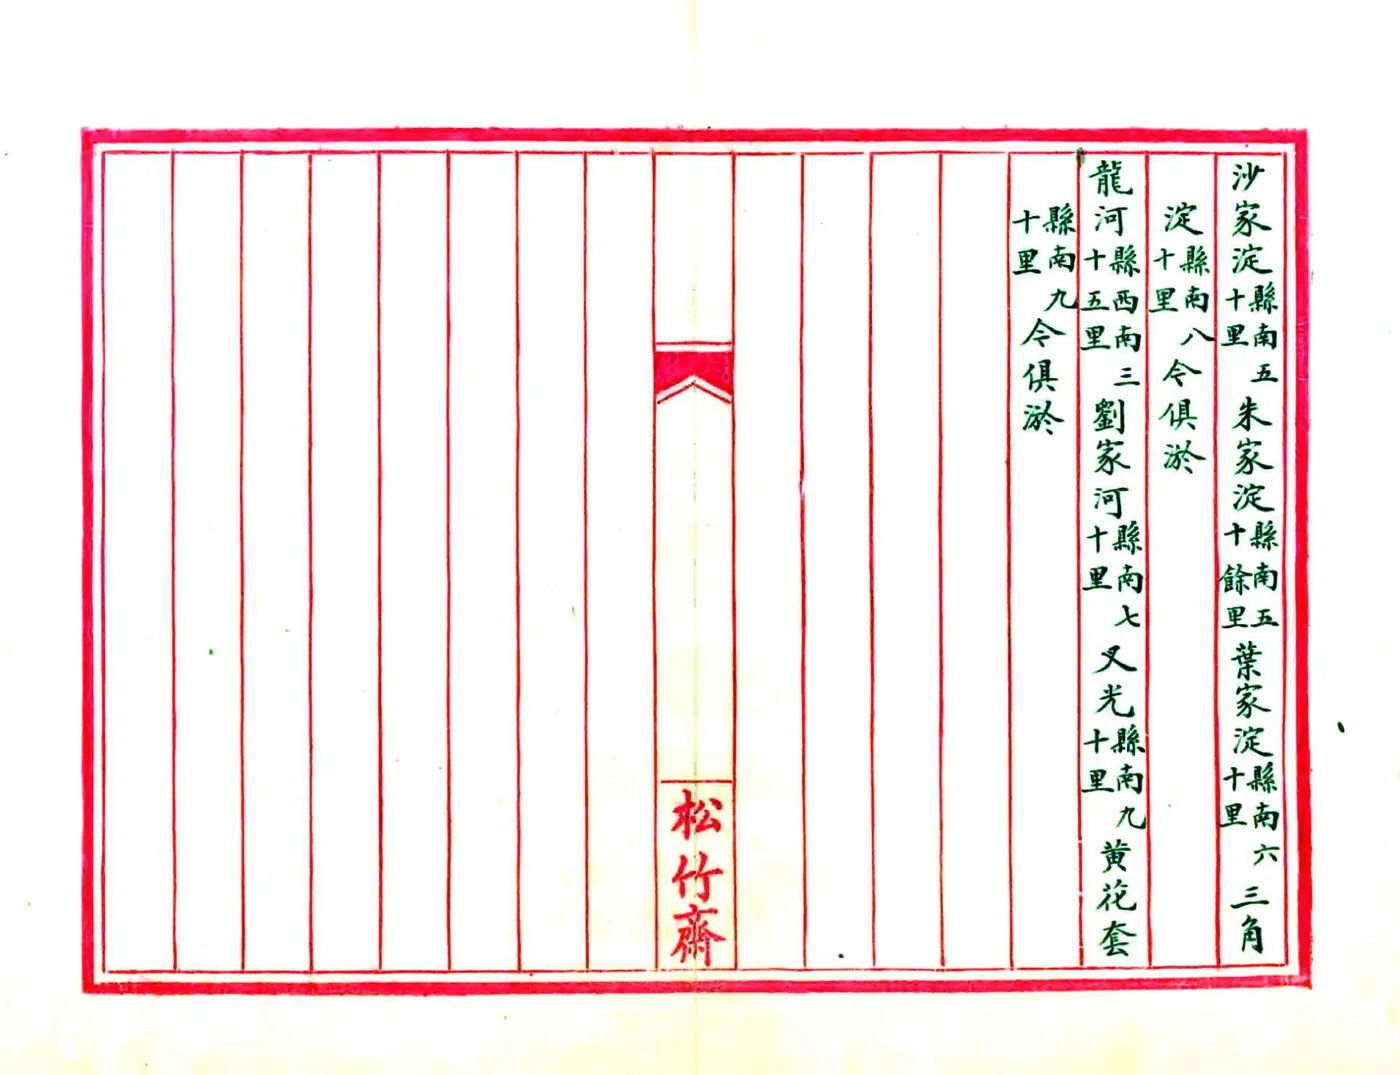 沙家淀縣南五十里朱家淀縣南五十餘里葉家淀縣南六十里三角
淀縣南八十里今俱淤
龍河縣西南三十五里劉家河縣南七十里叉光縣南九十里黄花套
縣南九十里今俱淤
松竹齋